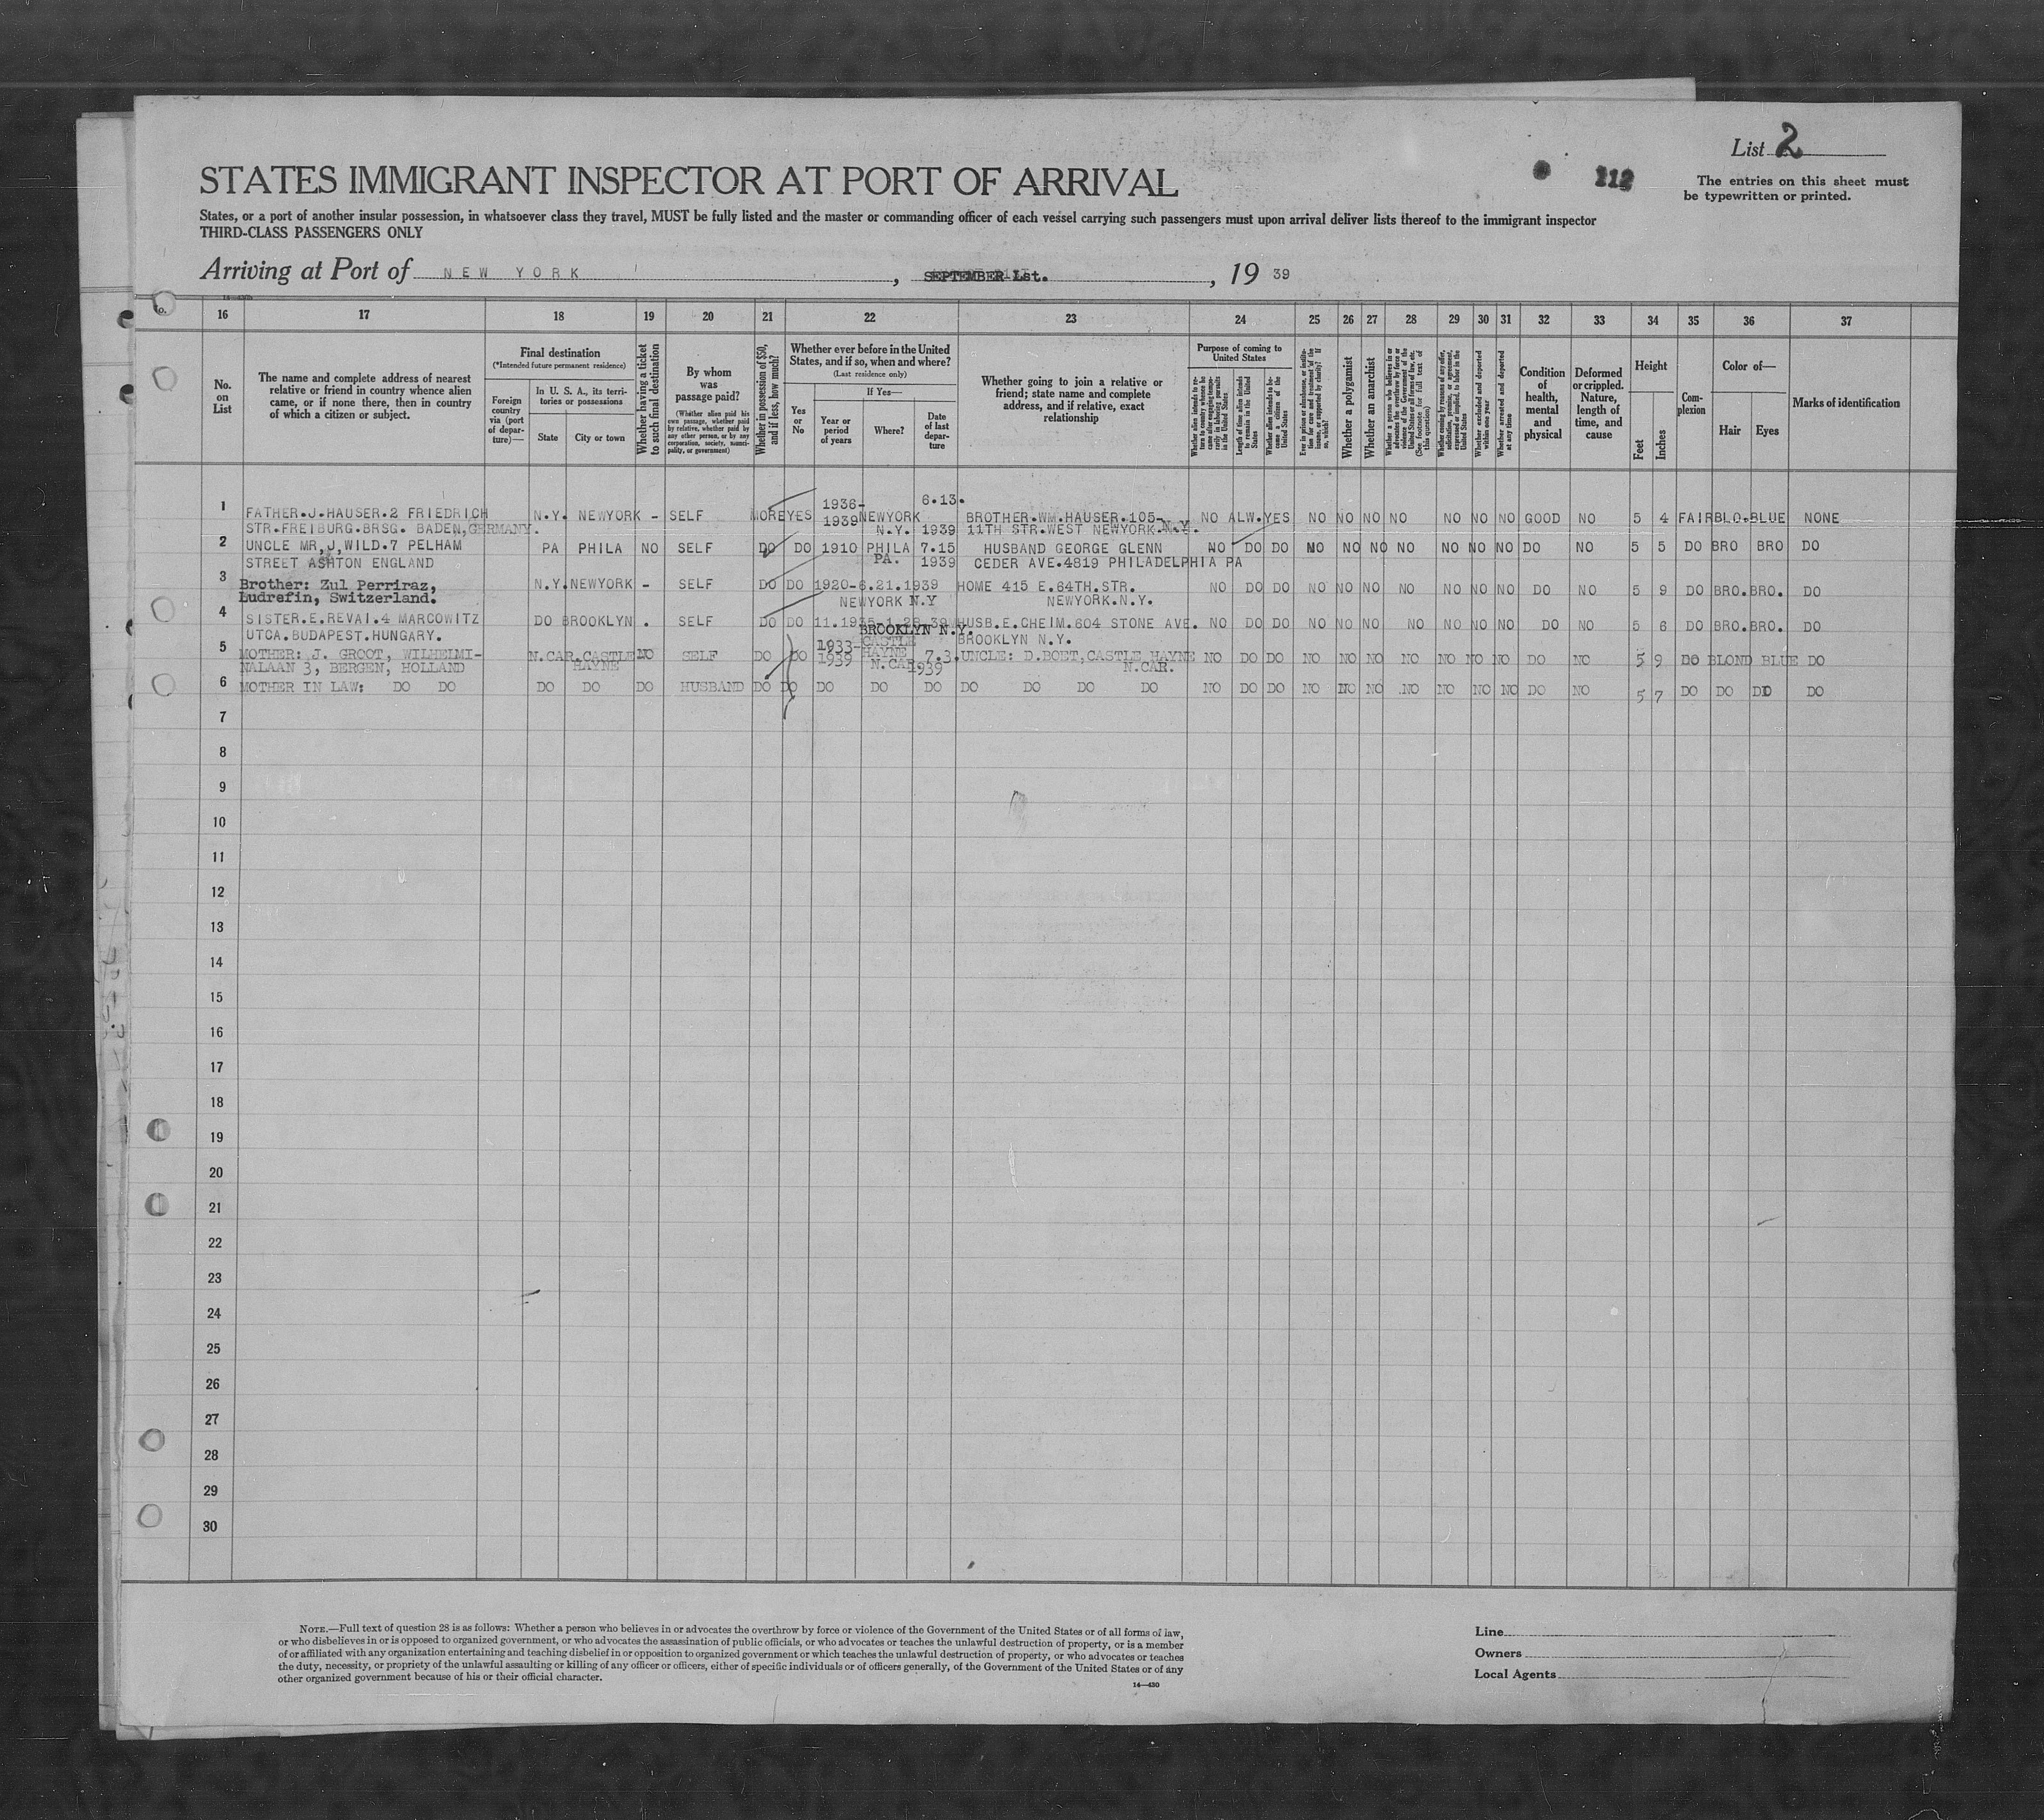 List 2
STATES IMMIGRANT INSPECTOR AT PORT OF ARRIVAL
The entries on this sheet must
be typewritten or printed.
States, or a port of another insular possession, in whatsoever class they travel, MUST be fully listed and the master or commanding officer of each vessel carrying such passengers must upon arrival deliver lists thereof to the immigrant inspector
THIRD-CLASS PASSENGERS ONLY
Arriving at Port of NEW YORK, SEPTEMBER 1st., 19 39
16 17 18 19 20 21 22 23 24 25 26 27 28 29 30 31 32 33 34 35 36 37
No.
on
List
The name and complete address of nearest
relative or friend in country whence alien
came, or if none there, then in country
of which a citizen or subject.
Final destination
(*Intended future permanent residence)
Foreign
country
via (port
of depar-
ture)—
In U. S. A., its terri-
tories or possessions
State
City or town
Whether having a ticket
to such final destination
By whom
was
passage paid?
(Whether alien paid his
own passage, whether paid
by relative, whether paid by
any other person, or by any
corporation, society, munici-
pality, or government)
Whether in possession of $50,
and if less, how much?
Whether ever before in the United
States, and if so, when and where?
(Last residence only)
Yes
or
No
If Yes—
Year or
period
of years
Where?
Date
of last
depar-
ture
Whether going to join a relative or
friend; state name and complete
address, and if relative, exact
relationship
Purpose of coming to
United States
Whether alien intends to re-
turn to country whence he
came after engaging tempo-
rarily in laboring pursuits
in the United States
Length of time alien intends
to remain in the United
States
Whether alien intends to be-
come a citizen of the
United States
Ever in prison or almshouse, or institu-
tion for care and treatment of the
insane, or supported by charity? If
so, which?
Whether a polygamist
Whether an anarchist
Whether a person who believes in or
advocates the overthrow by force or
violence of the Government of the
United States or all forms of law, etc.
(See footnote for full text of
this question)
Whether coming by reason of any offer,
solicitation, promise, or agreement,
expressed or implied, to labor in the
United States
Whether excluded and deported
within one year
Whether arrested and deported
at any time
Condition
of
health,
mental
and
physical
Deformed
or crippled.
Nature,
length of
time, and
cause
Height
Feet
Inches
Com-
plexion
Color of—
Hair
Eyes
Marks of identification
1936- 6.13.
1 FATHER.J.HAUSER.2 FRIEDRICH N.Y. NEWYORK - SELF MORE YES 1939 NEWYORK BROTHER.WM.HAUSER.105- NO ALW. YES NO NO NO NO NO NO NO GOOD NO 5 4 FAIR BLO. BLUE NONE
STR.FREIBURG.BRSG. BADEN,GERMANY. N.Y. 1939 11TH STR.WEST NEWYORK.N.Y.
2 UNCLE MR,J,WILD.7 PELHAM PA PHILA NO SELF DO DO 1910 PHILA 7.15 HUSBAND GEORGE GLENN NO DO DO NO NO NO NO NO NO NO DO NO 5 5 DO BRO BRO DO
STREET ASHTON ENGLAND PA. 1939 CEDER AVE.4819 PHILADELPHIA PA
3 Brother: Zul Perriraz, N.Y. NEWYORK - SELF DO DO 1920-6.21.1939 HOME 415 E.64TH.STR. NO DO DO NO NO NO NO NO NO NO DO NO 5 9 DO BRO. BRO. DO
Ludrefin, Switzerland. NEWYORK N.Y NEWYORK.N.Y.
4 SISTER.E.REVAI.4 MARCOWITZ DO BROOKLYN . SELF DO DO 11.1935-1.28.39 HUSB.E.CHEIM.604 STONE AVE. NO DO DO NO NO NO NO NO NO NO DO NO 5 6 DO BRO. BRO. DO
UTCA.BUDAPEST.HUNGARY. BROOKLYN N.Y. BROOKLYN N.Y.
5 MOTHER: J. GROOT, WILHELMI- N.CAR. CASTLE NO SELF DO DO 1933- CASTLE HAYNE 7.3. UNCLE: D.BOET,CASTLE HAYNE NO DO DO NO NO NO NO NO NO NO DO NO 5 9 DO BLOND BLUE DO
NALAAN 3, BERGEN, HOLLAND HAYNE 1939 N.CAR 1939 N.CAR.
6 MOTHER IN LAW: DO DO DO DO DO HUSBAND DO DO DO DO DO DO DO DO DO NO DO DO NO NO NO NO NO NO NO DO NO 5 7 DO DO DO DO
7
8
9
10
11
12
13
14
15
16
17
18
19
20
21
22
23
24
25
26
27
28
29
30
NOTE.—Full text of question 28 is as follows: Whether a person who believes in or advocates the overthrow by force or violence of the Government of the United States or of all forms of law,
or who disbelieves in or is opposed to organized government, or who advocates the assassination of public officials, or who advocates or teaches the unlawful destruction of property, or is a member
of or affiliated with any organization entertaining and teaching disbelief in or opposition to organized government or which teaches the unlawful destruction of property, or who advocates or teaches
the duty, necessity, or propriety of the unlawful assaulting or killing of any officer or officers, either of specific individuals or of officers generally, of the Government of the United States or of any
other organized government because of his or their official character.
14—430
Line
Owners
Local Agents